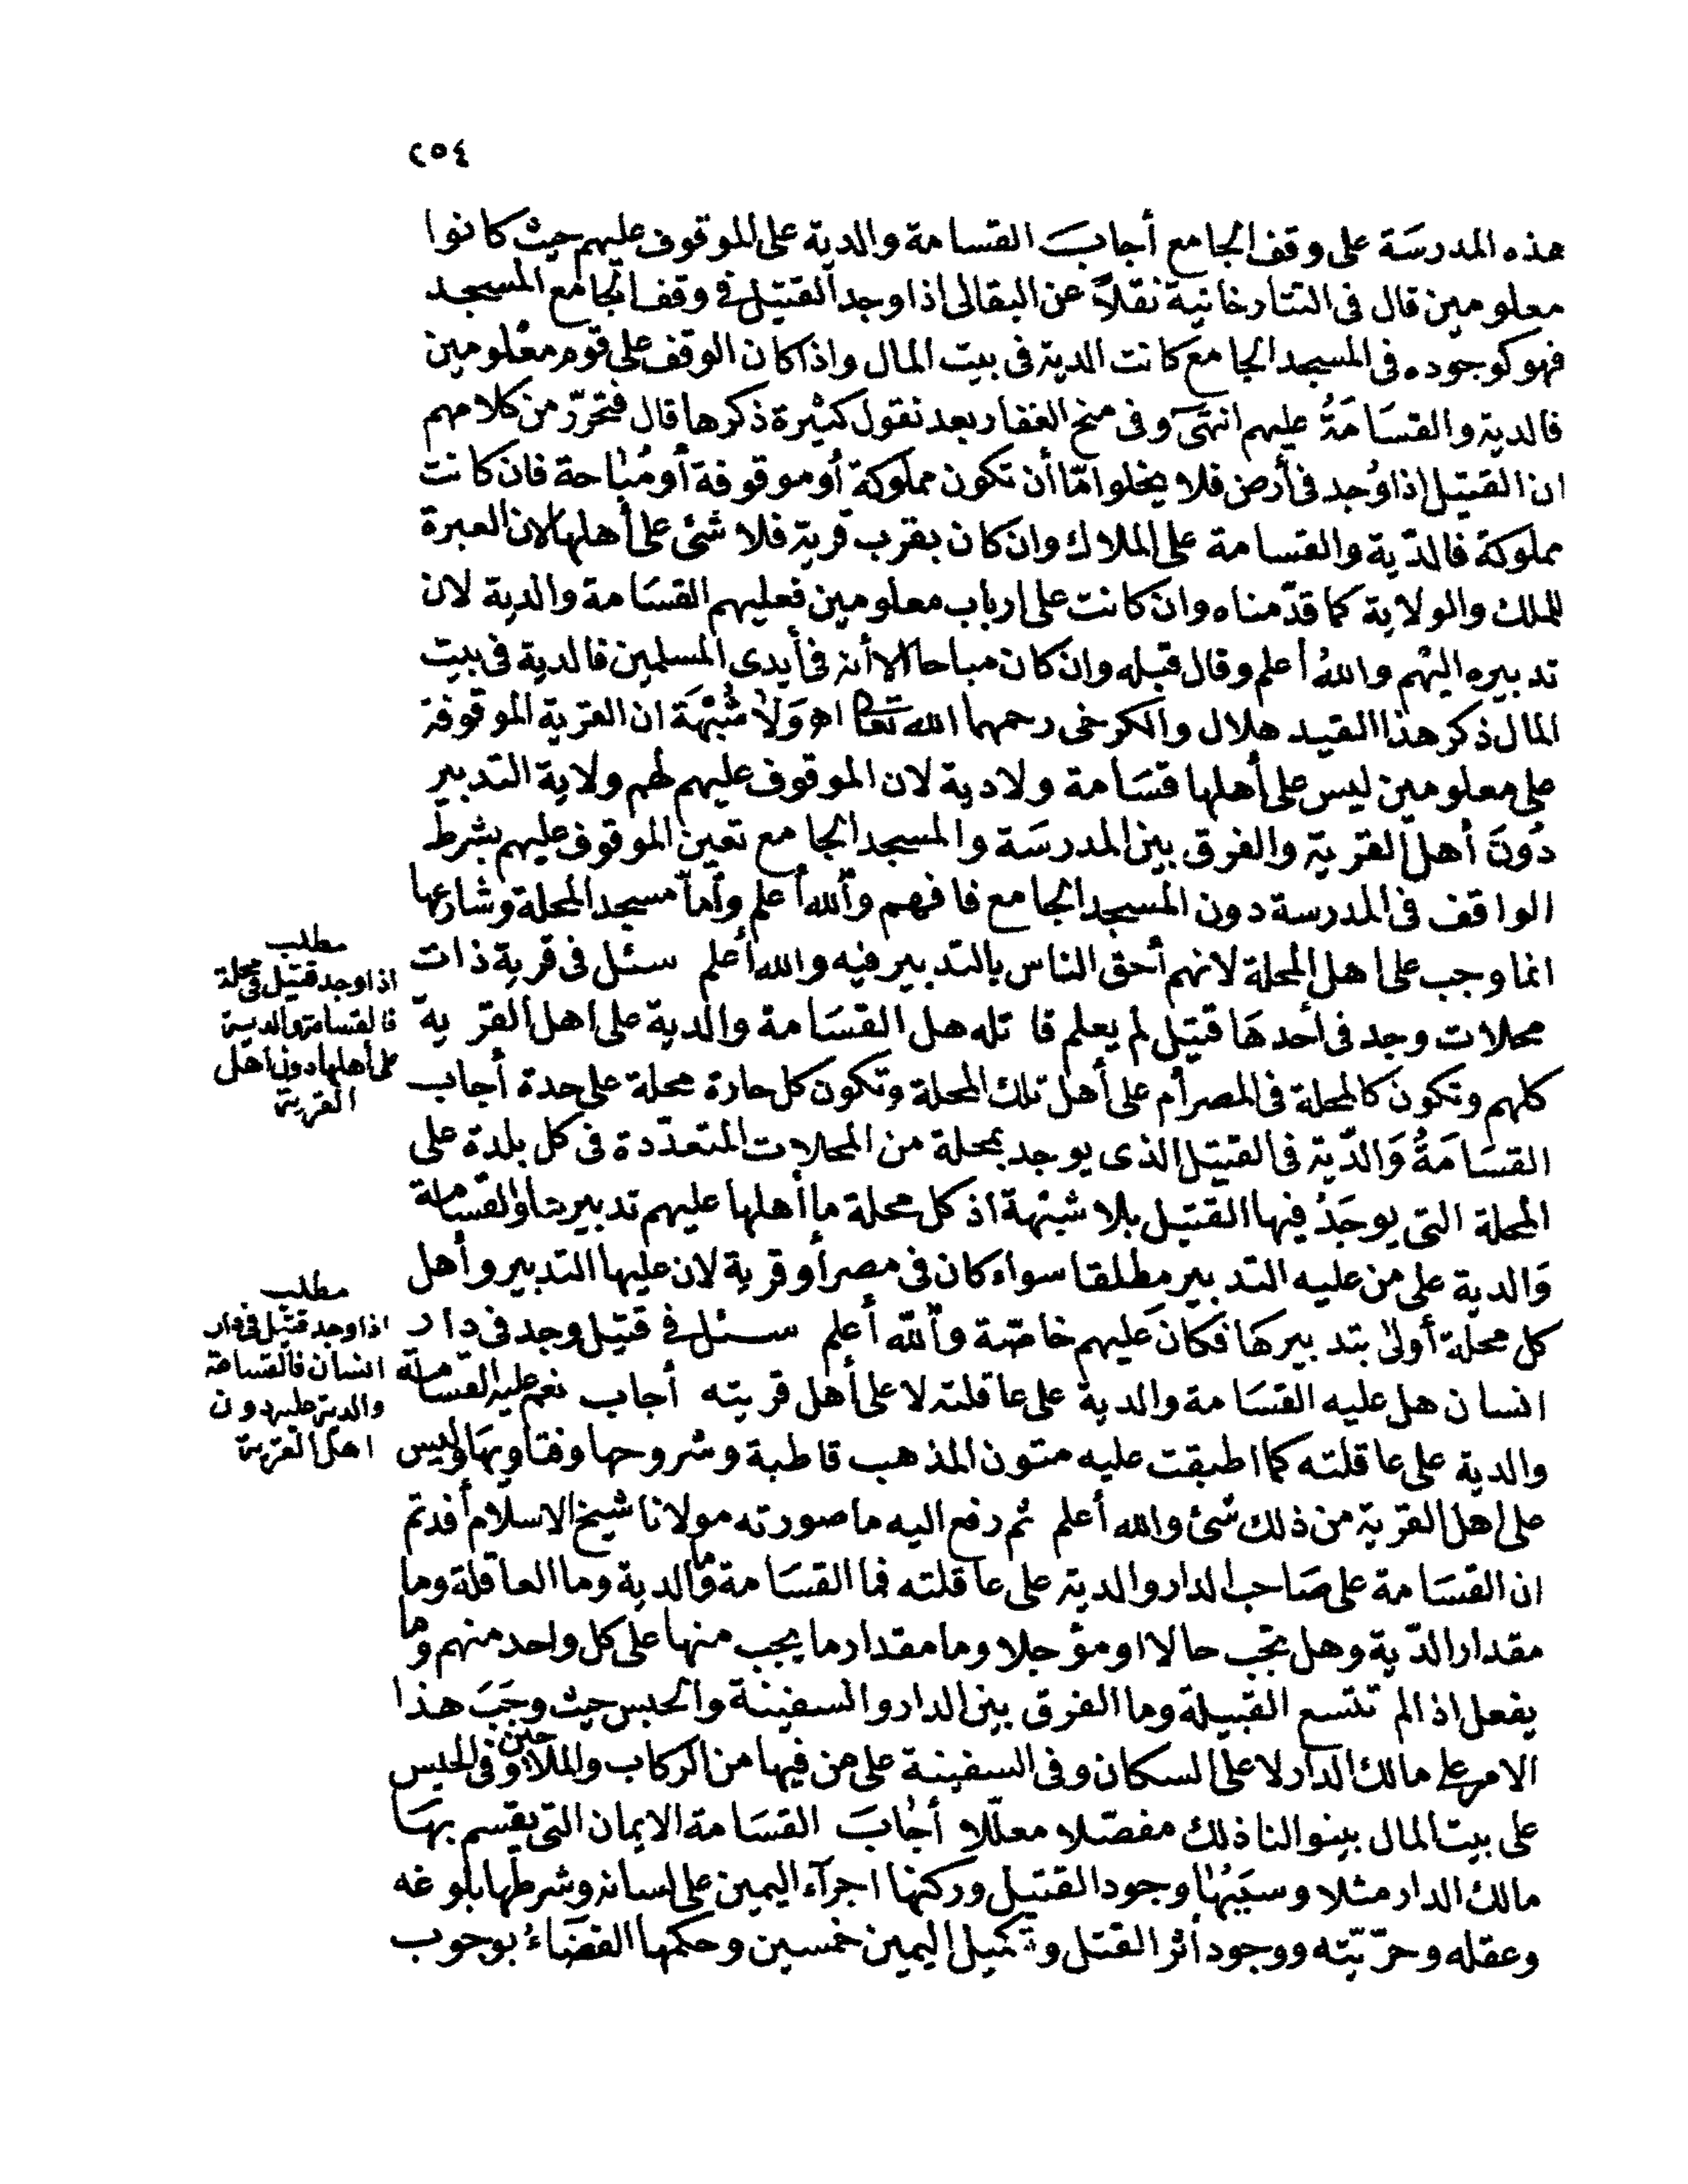 ٢٥٤
هذه المدرسة على وقف الجامع أجاب القسامة والدية على الموقوف عليهم حيث كانوا
معلومين قال فى التتارخانية نقلاً عن البقالى اذا وجد القتيل فى وقف الجامع المسجد
فهو كوجوده فى المسجد الجامع كانت الدية فى بيت المال واذا كان الوقف على قوم معلومين
فالدية والقسامةُ عليهم انتهى وفى منح الغفار بعد نقول كثيرة ذكرها قال فتحرّر من كلامهم
ان القتيل اذا وُجد فى أرض فلا يخلوا امّا أن تكون مملوكة أو موقوفة أو مُباحة فان كانت
مملوكة فالدّية والقسامة على الملاك وان كان بقرب قرية فلا شئ على أهلها لان العبرة
للملك والولاية كما قدّمناه وان كانت على ارباب معلومين فعليهم القسَامة والدية لان
تدبيره اليهم واللهُ أعلم وقال قبله وان كان مباحا الا أنه فى أيدى المسلمين فالدية فى بيت
المال ذكر هذا القيد هلال والكرخى رحمهما الله تعالى اهـ وَلَا شُبْهَة ان القرية الموقوفة
على معلومين ليس على أهلها قسَامة ولا دية لان الموقوف عليهم لهم ولاية التدبير
دُونَ أهل القرية والفرق بين المدرسَة والمسجد الجامع تعين الموقوف عليهم بشرط
الواقف فى المدرسة دون المسجد الجامع فافهم والله أعلم وأما مسجد المحلة وشارعها
انما وجب على اهل المحلة لانهم أحق الناس بالتدبير فيه والله أعلم سئل فى قرية ذات
محلات وجد فى أحدهَا قتيل لم يعلم قاتله هل القسَامة والدية على اهل القرية
كلهم وتكون كالمحلة فى المصر أم على أهل تلك المحلة وتكون كل حارة محلة على حدة أجاب
القسَامَةُ وَالدّية فى القتيل الذى يوجد بمحلة من المحلات المتعدّدة فى كل بلدة على
المحلة التى يوجَدُ فيها القتيل بلا شبْهة اذ كل محلة ما أهلها عليهم تدبيرها والقسامة
وَالدية على من عليه التدبير مطلقا سواء كان فى مصر أو قرية لان عليها التدبير وأهل
كل محلة أولى بتدبيرهَا فكانَ عليهم خاصّة والله أعلم سئل فى قتيل وجد فى دار
انسان هل عليه القسَامة والدية على عاقلته لا على أهل قريته أجاب نعم عليه القسامة
والدية على عاقلته كما اطبقت عليه متون المذهب قاطبة وشروحها وفتاويهَا وليس
على اهل القرية من ذلك شئ والله أعلم ثم رفع اليه ما صورته مولانا شيخ الاسلام أفدتم
ان القسَامة على صَاحب الدار والدية على عاقلته فما القسَامة وما الدية وما العاقلة وما
مقدار الدّية وهل تجب حالا او مؤجلا وما مقدار ما يجب منها على كل واحد منهم وما
يفعل اذا لم تتسع القبيلة وما الفرق بين الدار والسفينة والحبس حيث وجَبَ هذا
الامر على مالك الدار لا على السكان وفى السفينة على من فيها من الركاب والملاحين وفى الحبس
على بيت المال بينوا لنا ذلك مفصّلا معللا أجابَ القسَامة الايمان التى يقسم بهَا
مالك الدار مثلا وسبَبُهَا وجود القتيل وركنها اجرآء اليمين على لسانه وشرطها بلوغه
وعقله وحرّيّته ووجود أثر القتل وتكميل اليمين خمسين وحكمها القضَاءُ بوجوب
مطلب
اذا وجد قتيل فى محلة
فالقسامة والدية
على أهلها دون اهل
القرية
مطلب
اذا وجد قتيل فى دار
انسان فالقسامة
والدية عليه دون
اهل القرية